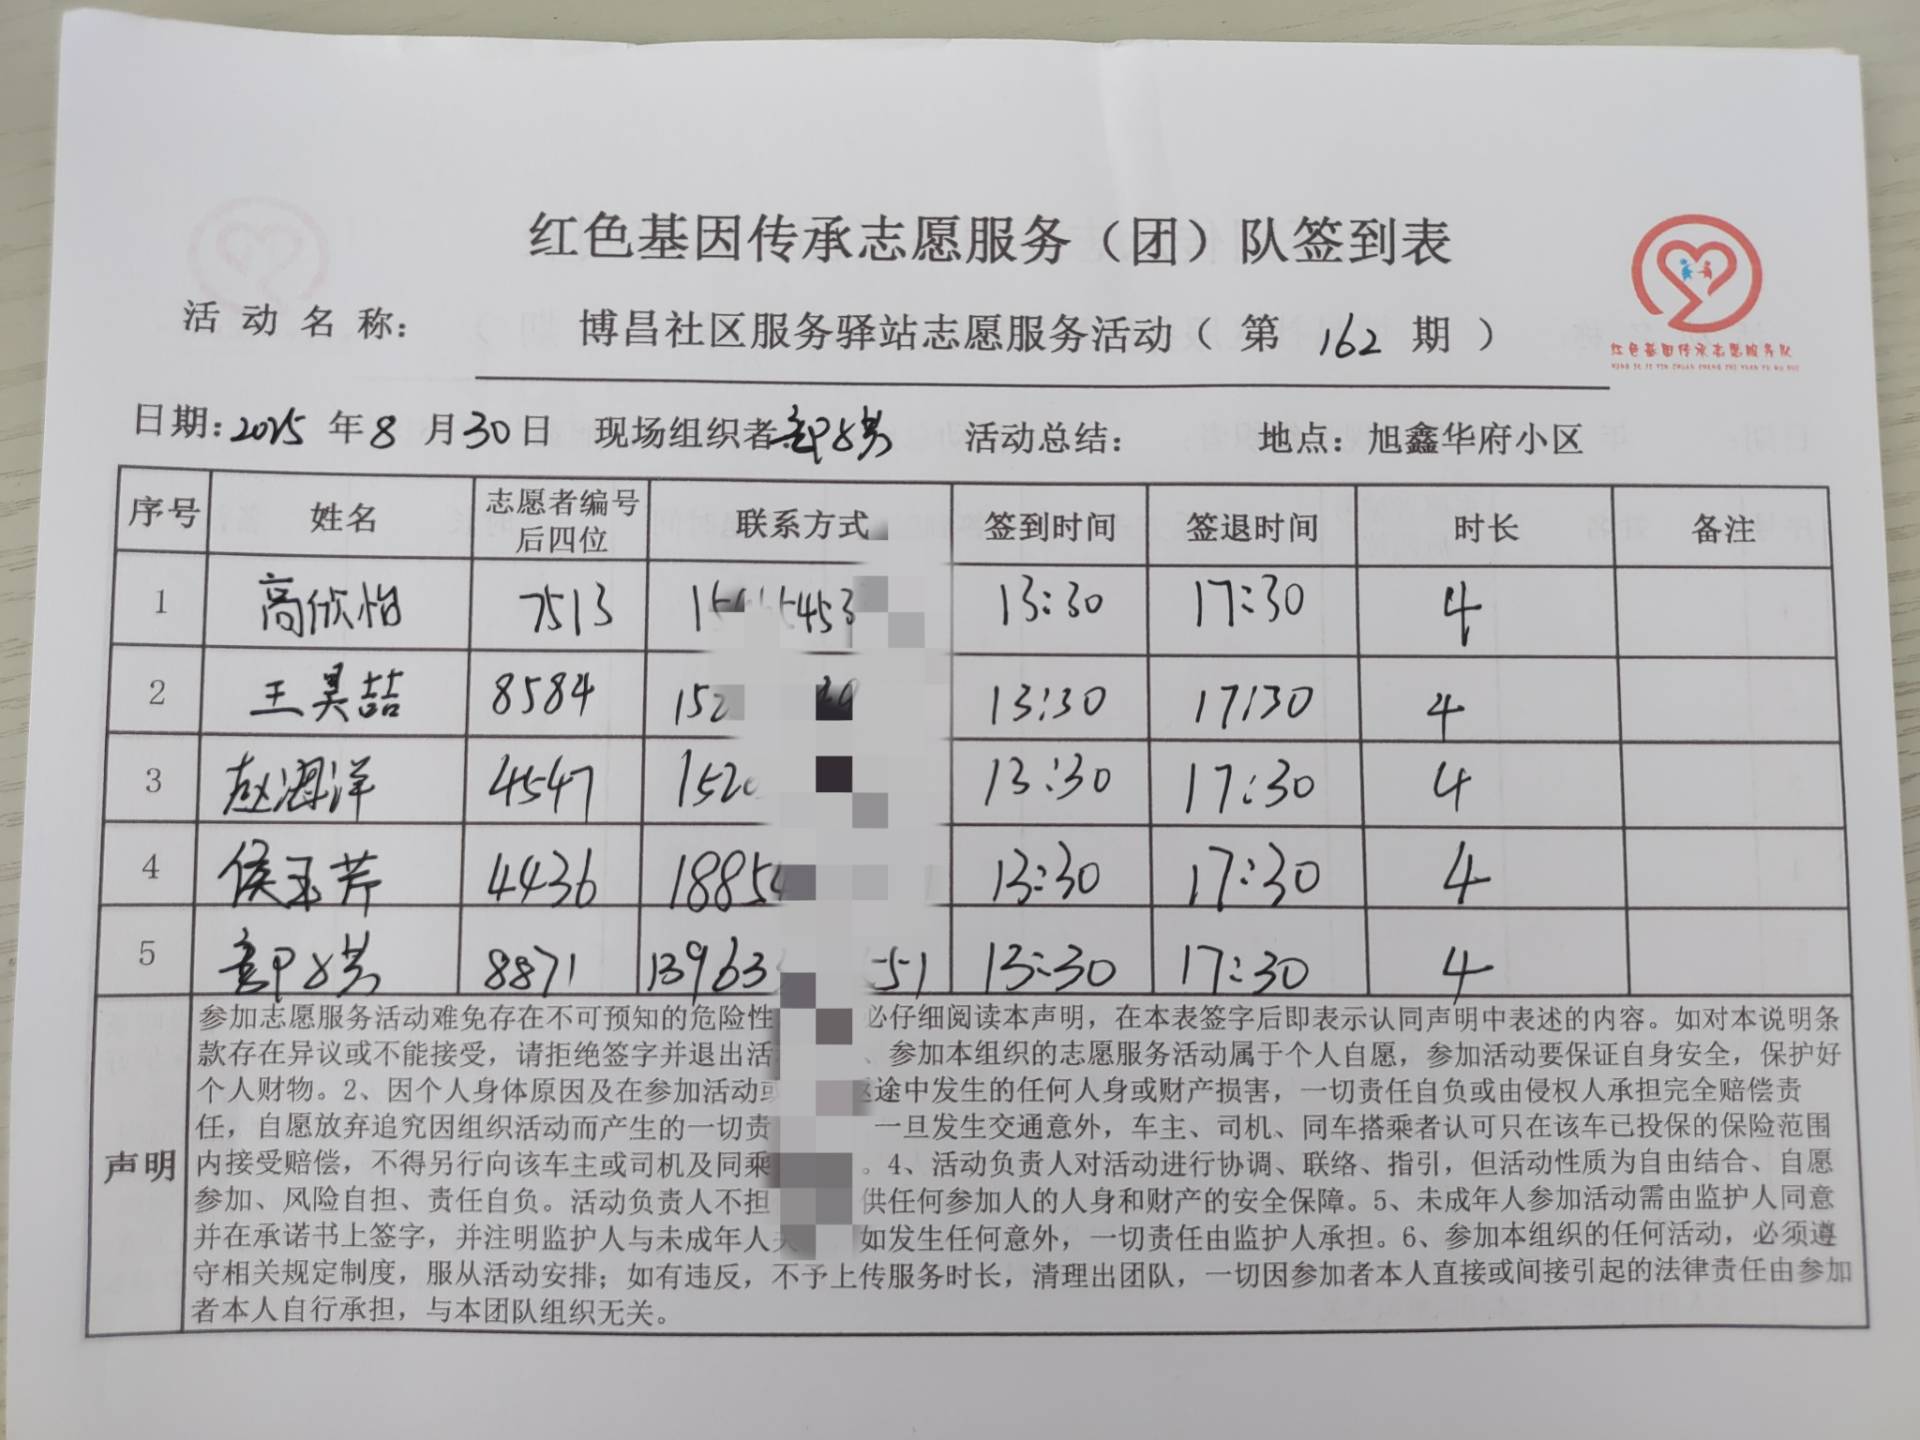 红色基因传承志愿服务（团）队签到表
活动名称： 博昌社区服务驿站志愿服务活动（第 162 期）
红色基因传承志愿服务队
HONG SE JI YIN CHUAN CHENG ZHI YUAN FU WU DUI
日期：2025 年 8 月 30 日 现场组织者 活动总结： 地点：旭鑫华府小区
序号 姓名 志愿者编号后四位 联系方式 签到时间 签退时间 时长 备注
1 高欣怡 7513 13:30 17:30 4
2 王昊喆 8584 152 13:30 17:30 4
3 赵海洋 4547 1520 13:30 17:30 4
4 侯玉芹 4436 1885 13:30 17:30 4
5 8871 13963 51 13:30 17:30 4
声明
参加志愿服务活动难免存在不可预知的危险性 必仔细阅读本声明，在本表签字后即表示认同声明中表述的内容。如对本说明条
款存在异议或不能接受，请拒绝签字并退出活 、参加本组织的志愿服务活动属于个人自愿，参加活动要保证自身安全，保护好
个人财物。2、因个人身体原因及在参加活动或 途中发生的任何人身或财产损害，一切责任自负或由侵权人承担完全赔偿责
任，自愿放弃追究因组织活动而产生的一切责 一旦发生交通意外，车主、司机、同车搭乘者认可只在该车已投保的保险范围
内接受赔偿，不得另行向该车主或司机及同乘 。4、活动负责人对活动进行协调、联络、指引，但活动性质为自由结合、自愿
参加、风险自担、责任自负。活动负责人不担 供任何参加人的人身和财产的安全保障。5、未成年人参加活动需由监护人同意
并在承诺书上签字，并注明监护人与未成年人关 如发生任何意外，一切责任由监护人承担。6、参加本组织的任何活动，必须遵
守相关规定制度，服从活动安排；如有违反，不予上传服务时长，清理出团队，一切因参加者本人直接或间接引起的法律责任由参加
者本人自行承担，与本团队组织无关。